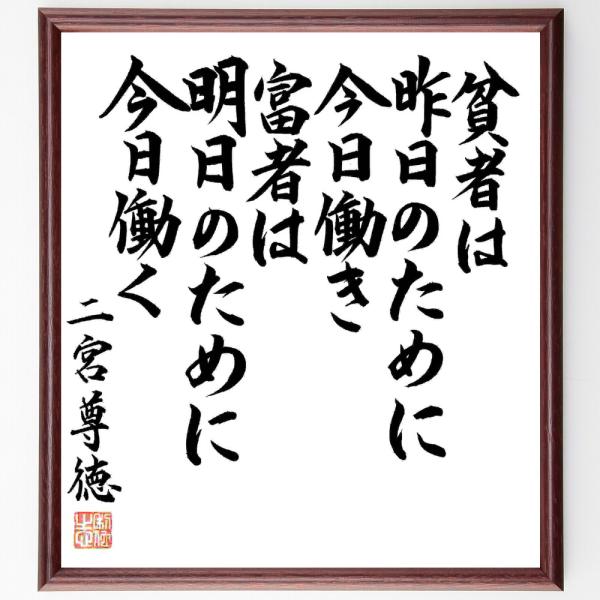 貧者は
昨日のために
今日働き
富者は
明日のために
今日働く
二宮尊徳